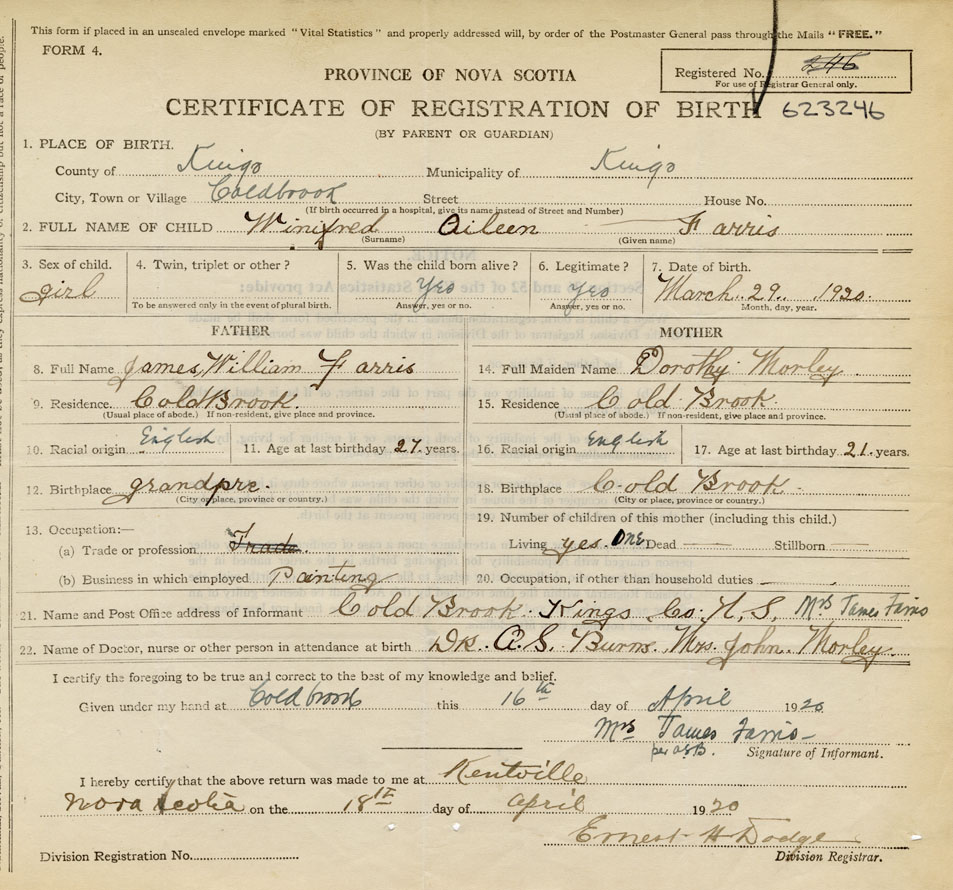 This form if placed in an unsealed envelope marked "Vital Statistics" and properly addressed will, by order of the Postmaster General pass through the Mails "FREE."
FORM 4.
PROVINCE OF NOVA SCOTIA
Registered No. 246
For use of Registrar General only.
CERTIFICATE OF REGISTRATION OF BIRTH 623246
(BY PARENT OR GUARDIAN)
1. PLACE OF BIRTH.
County of Kings Municipality of Kings
City, Town or Village Coldbrook Street House No.
(If birth occurred in a hospital, give its name instead of Street and Number)
2. FULL NAME OF CHILD Winifred Aileen Farris
(Surname) (Given name)
3. Sex of child. 4. Twin, triplet or other? 5. Was the child born alive? 6. Legitimate? 7. Date of birth.
girl Yes Yes March 29. 1920.
To be answered only in the event of plural birth. Answer, yes or no. Answer, yes or no. Month, day, year.
FATHER MOTHER
8. Full Name James William Farris 14. Full Maiden Name Dorothy Morley
9. Residence. Cold Brook. 15. Residence Cold Brook.
(Usual place of abode.) If non-resident, give place and province. (Usual place of abode.) If non-resident, give place and province.
10. Racial origin English 11. Age at last birthday 27. years. 16. Racial origin English 17. Age at last birthday 21. years.
12. Birthplace grandpre. 18. Birthplace Cold Brook.
(City or place, province or country.) (City or place, province or country.)
13. Occupation:— 19. Number of children of this mother (including this child.)
(a) Trade or profession Trade. Living yes. ONE Dead Stillborn
(b) Business in which employed Painting 20. Occupation, if other than household duties
21. Name and Post Office address of Informant Cold Brook. Kings Co. N. S. Mrs James Farris
22. Name of Doctor, nurse or other person in attendance at birth Dr. A. S. Burns. Mrs. John. Morley.
I certify the foregoing to be true and correct to the best of my knowledge and belief.
Given under my hand at Coldbrook this 16th day of April 1920
Mrs James Farris
Signature of Informant.
I hereby certify that the above return was made to me at Kentville
Nova Scotia on the 18th day of April 1920
Ernest H Dodge
Division Registration No. Division Registrar.